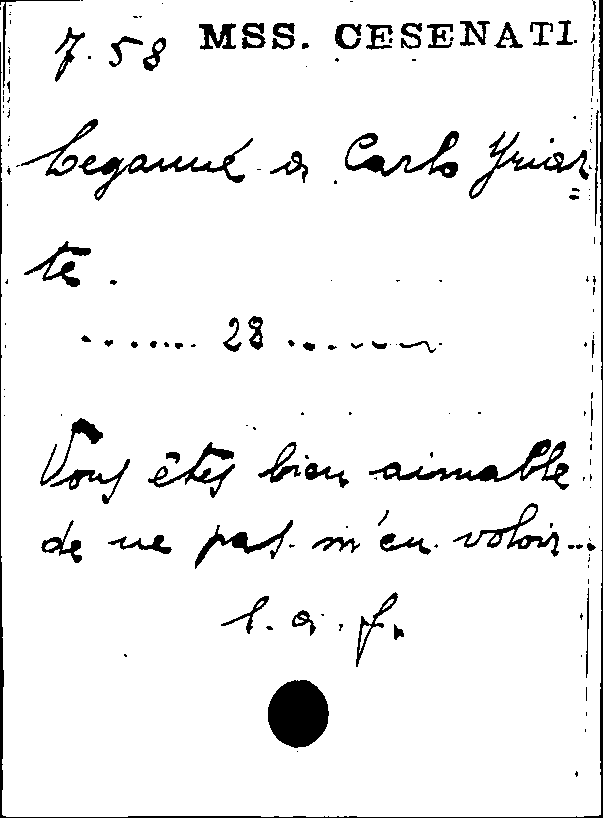 7.58 MSS. CESENATI
Leganné a Carlo Yriar=
te.
....... 28 .......
Vous êtes bien aimable
de ne pas m'en voloir...
l. a. f.